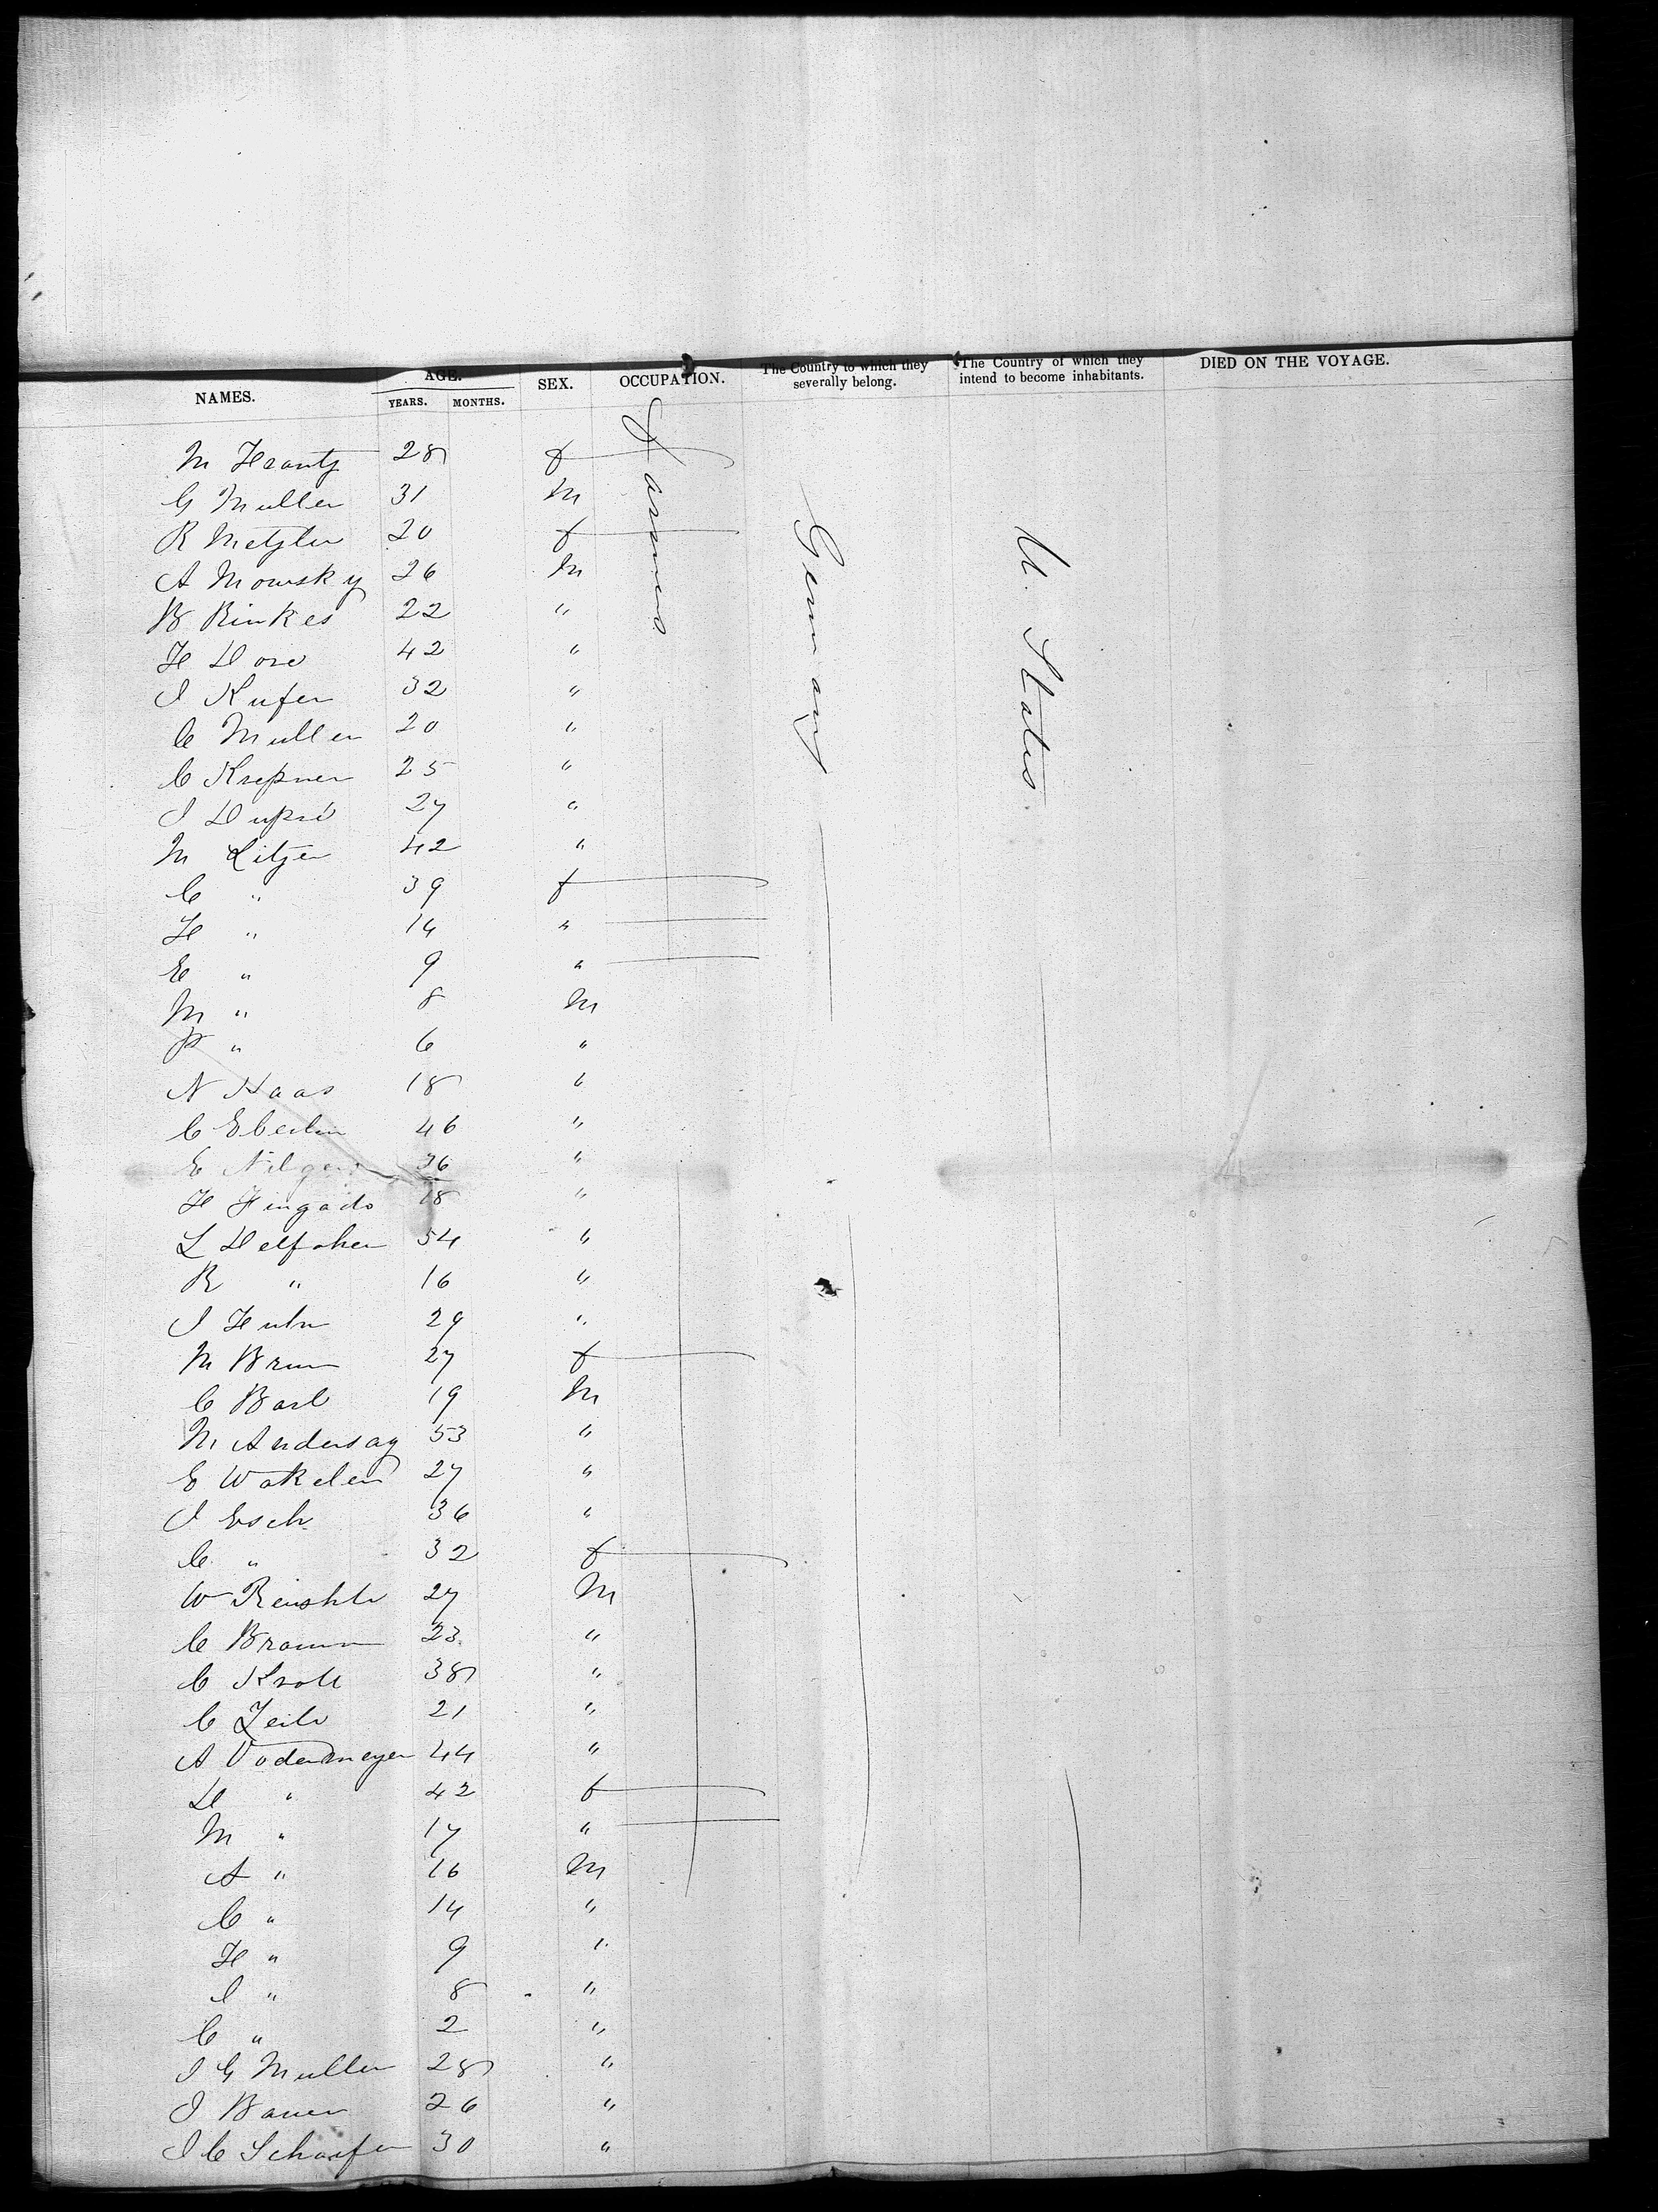 NAMES. AGE. YEARS. MONTHS. SEX. OCCUPATION. The Country to which they severally belong. The Country of which they intend to become inhabitants. DIED ON THE VOYAGE.
Farmers
Germany
U. States
M Frantz 28 f
G Muller 31 M
R Metzler 20 f
A Mowsky 26 M
B Rinkes 22 "
H Dore 42 "
J Kufer 32 "
C Muller 20 "
C Krepner 25 "
J Dupré 27 "
M Litzer 42 "
C " 39 f
H " 14 "
E " 9 "
M " 8 M
P " 6 "
N Haas 18 "
C Eberlin 46 "
E 36 "
H Fingado 18 "
L 54 "
R " 16 "
J 29 "
M Brun 27 f
C Barl 19 M
M Andersag 53 "
E Wakelen 27 "
J Esch 36 "
C " 32 f
W 27 M
C Braun 23 "
C Kroll 38 "
C Zeile 21 "
A Vodermeyer 44 "
D " 42 f
M " 17 "
A " 16 M
C " 14 "
H " 9 "
J " 8 "
C " 2 "
J G Muller 28 "
J Bauer 26 "
J C Schaefer 30 "